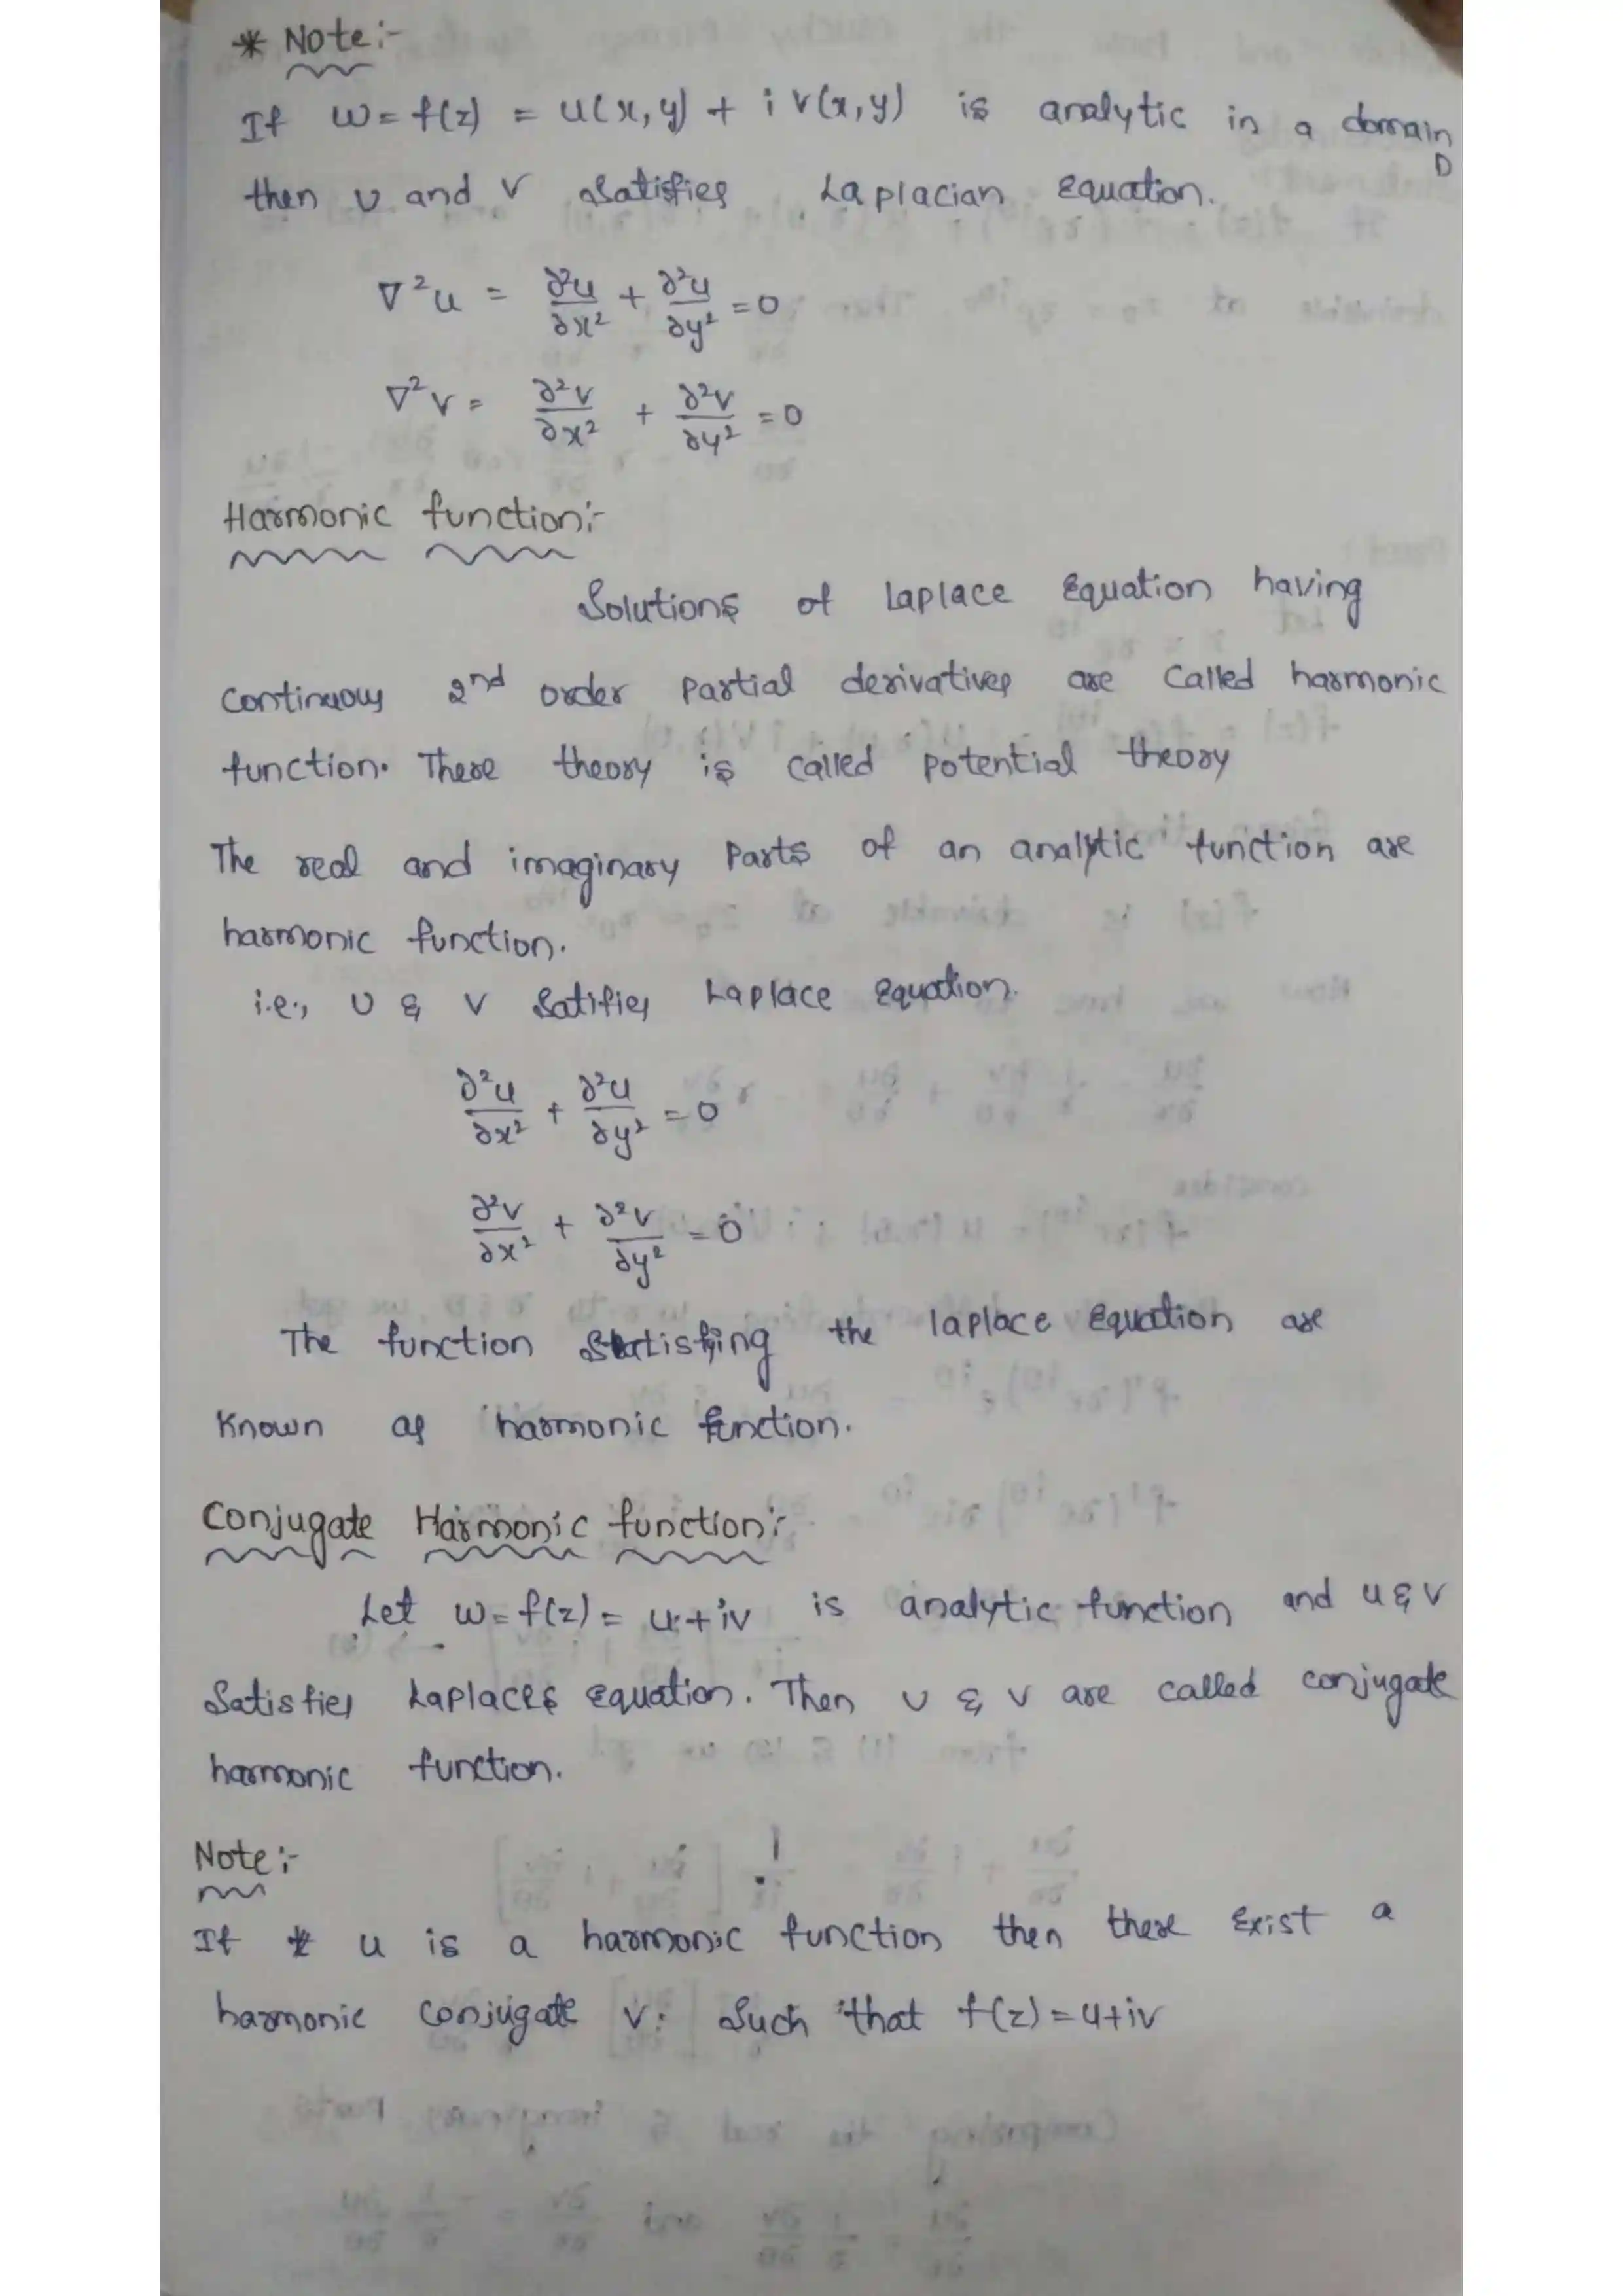 * Note :-
If w = f(z) = u(x,y) + i v(x,y) is analytic in a domain D
then u and v satisfies Laplacian Equation.
∇²u = ∂²u/∂x² + ∂²u/∂y² = 0
∇²v = ∂²v/∂x² + ∂²v/∂y² = 0
Harmonic function :-
Solutions of Laplace Equation having
continuous 2nd order partial derivatives are called harmonic
function. There theory is called potential theory
The real and imaginary parts of an analytic function are
harmonic function.
i.e., u & v satifies Laplace equation.
∂²u/∂x² + ∂²u/∂y² = 0
∂²v/∂x² + ∂²v/∂y² = 0
The function satisfing the laplace equation are
known as harmonic function.
Conjugate Harmonic function :-
Let w = f(z) = u + iv is analytic function and u & v
satisfies Laplaces equation. Then u & v are called conjugate
harmonic function.
Note :-
If u is a harmonic function then there exist a
harmonic conjugate v. Such that f(z) = u + iv